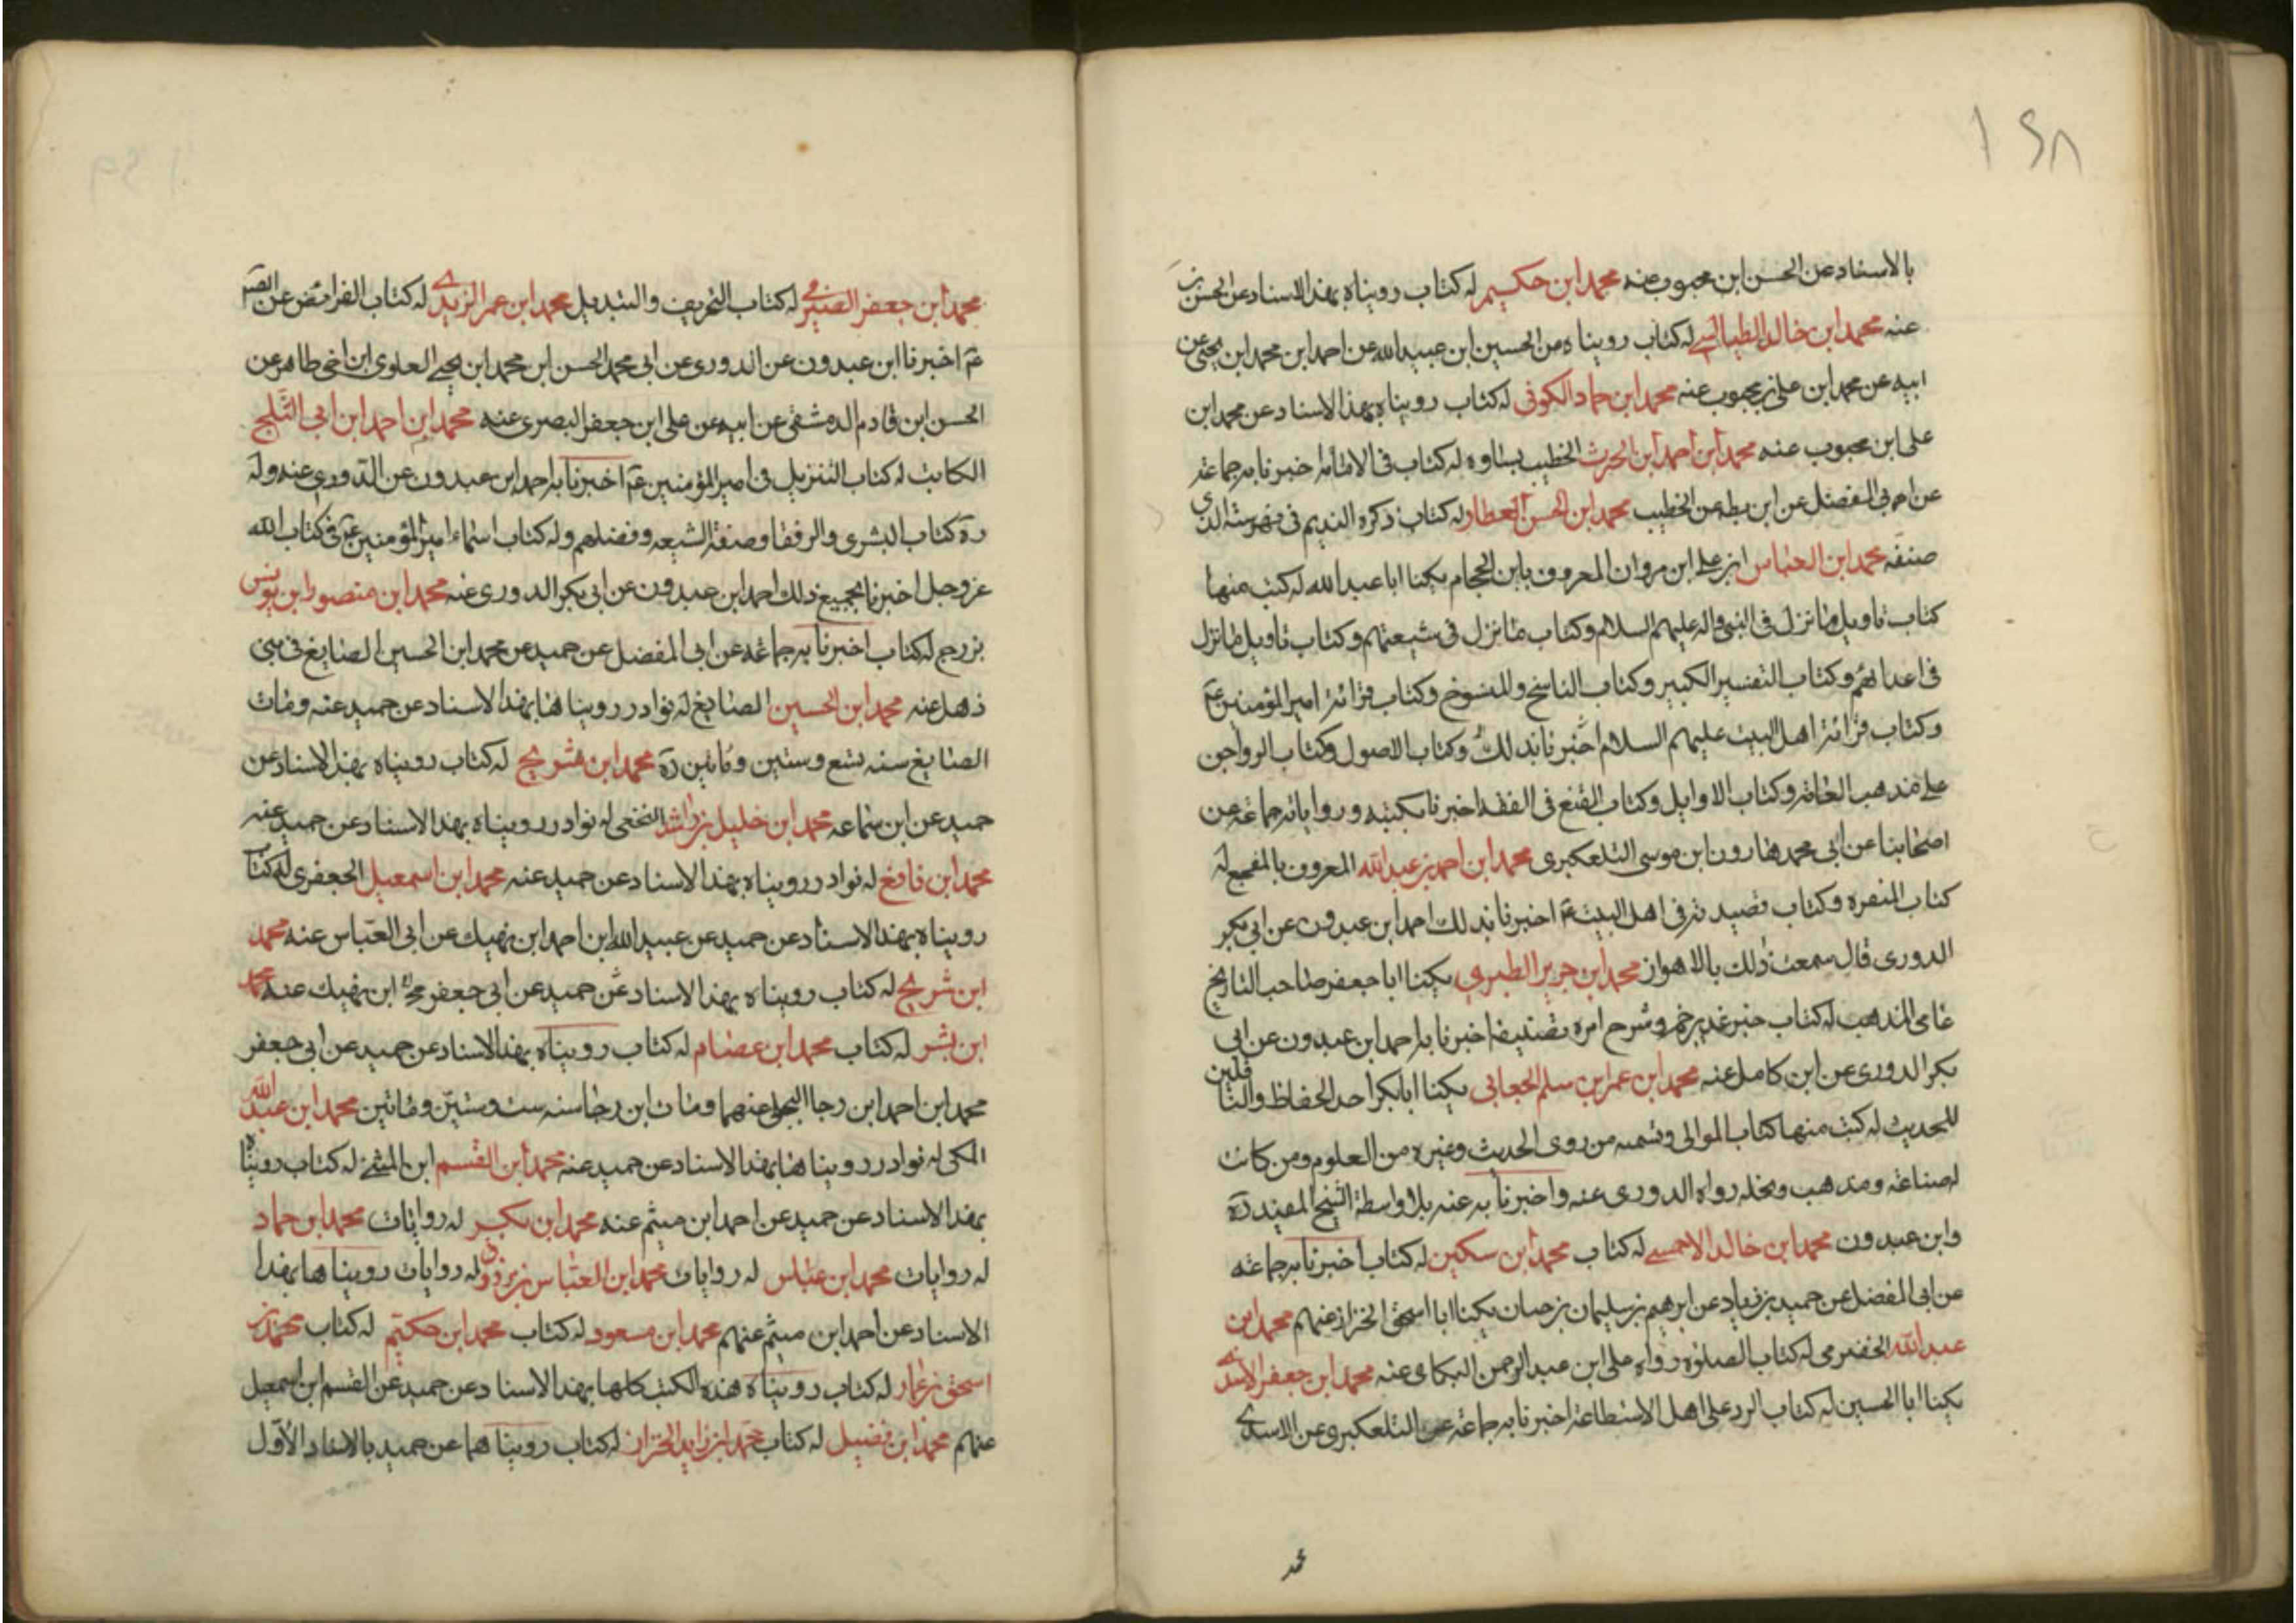 ١٤٨
بالاسناد عن الحسن ابن محبوب عنه محمد ابن حكيم له كتاب رويناه بهذا الاسناد عن الحسن بن
عنه محمد ابن خالد الطيالسي له كتاب رويناه من الحسين ابن عبيد الله عن احمد ابن محمد ابن يحيى عن
ابيه عن محمد ابن علي بن محبوب عنه محمد ابن حماد الكوفى له كتاب رويناه بهذا الاسناد عن محمد ابن
على ابن محبوب عنه محمد ابن احمد ابن الحرث الخطيب بساوه له كتاب فى الامامة اخبرنا به جماعة
عن ابى المفضل عن ابن بطه عن الخطيب محمد ابن الحسن العطار له كتاب ذكره النديم فى فهرسته الذى
صنفه محمد ابن العباس ابن على ابن مروان المعروف بابن الحجام يكنا ابا عبد الله له كتب منها
كتاب تاويل ما نزل فى النبى واله عليهم السلام وكتاب ما نزل فى شيعتهم وكتاب تاويل ما نزل
فى اعدائهم وكتاب التفسير الكبير وكتاب الناسخ والمنسوخ وكتاب قرائة امير المؤمنين ع
وكتاب قرائة اهل البيت عليهم السلام اخبرنا بذلك وكتاب الاصول وكتاب الرواجن
على مذهب العامة وكتاب الاوايل وكتاب المقنع فى الفقه اخبرنا بكتبه ورواياته جماعة من
اصحابنا عن ابى محمد هارون ابن موسى التلعكبرى محمد ابن احمد بن عبد الله المعروف بالمفجع له
كتاب المنقره وكتاب قصيدته فى اهل البيت ع اخبرنا بذلك احمد ابن عبدون عن ابى بكر
الدورى قال سمعت ذلك بالاهواز محمد ابن جرير الطبرى يكنا ابا جعفر صاحب التاريخ
عامى المذهب له كتاب خبر غدير خم وشرح امره تصنيفه اخبرنا به احمد ابن عبدون عن ابى
بكر الدورى عن ابن كامل عنه محمد ابن عمر ابن سلم الجعابى يكنا ابا بكر احد الحفاظ والناقلين
للحديث له كتب منها كتاب الموالى وتسميه من روى الحديث وغيره من العلوم ومن كانت
له صناعة ومذهب ونحله رواه الدورى عنه واخبرنا به عنه بلا واسطة الشيخ المفيد ره
وابن عبدون محمد ابن خالد الاحمسى له كتاب محمد ابن سكين له كتاب اخبرنا به جماعة
عن ابى المفضل عن حميد بن زياد عن ابرهيم بن سليمان بن حسان يكنا ابا اسحق الخزاز عنهم محمد ابن
عبد الله الحضرمى له كتاب الصلوة رواه على ابن عبد الرحمن البكاى عنه محمد ابن جعفر الاسدى
يكنا ابا الحسين له كتاب الرد على اهل الاستطاعة اخبرنا به جماعة عن التلعكبرى عن الاسدى
محمد ابن جعفر الصيرفى له كتاب التحريف والتبديل محمد ابن عمر الزيدى له كتاب الفرائض عن الص
ع اخبرنا ابن عبدون عن الدورى عن ابى محمد الحسن ابن محمد ابن يحيى العلوى ابن اخى طاهر عن
الحسن ابن قادم الدمشقى عن ابيه عن على ابن جعفر البصرى عنه محمد ابن احمد ابن ابى الثلج
الكاتب له كتاب التنزيل فى امير المؤمنين ع اخبرنا به احمد ابن عبدون عن الدورى عنه وله
ره كتاب البشرى والزلفا وصفة الشيعه وفضلهم وله كتاب اسماء امير المؤمنين ع فى كتاب الله
عز وجل اخبرنا بجميع ذلك احمد ابن عبدون عن ابى بكر الدورى عنه محمد ابن منصور ابن يونس
بزرج له كتاب اخبرنا به جماعة عن ابى المفضل عن حميد عن محمد ابن الحسين الصايغ فى بنى
ذهل عنه محمد ابن الحسين الصايغ له نوادر رويناها بهذا الاسناد عن حميد عنه ومات
الصايغ سنه تسع وستين ومائتين ره محمد ابن شريح له كتاب رويناه بهذا الاسناد عن
حميد عن ابن سماعه محمد ابن خليل بن راشد النخعى له نوادر رويناه بهذا الاسناد عن حميد عنه
محمد ابن نافع له نوادر رويناه بهذا الاسناد عن حميد عنه محمد ابن اسمعيل الجعفرى له كتاب
رويناه بهذا الاسناد عن حميد عن عبيد الله ابن احمد ابن نهيك عن ابى العباس عنه محمد
ابن شريح له كتاب رويناه بهذا الاسناد عن حميد عن ابى جعفر محمد ابن نهيك عنه محمد
ابن بشر له كتاب محمد ابن عصام له كتاب رويناه بهذا الاسناد عن حميد عن ابى جعفر
محمد ابن احمد ابن رجا البجلى عنهما ومات ابن رجا سنه ست وستين ومائتين محمد ابن عبد الله
المكى له نوادر رويناها بهذا الاسناد عن حميد عنه محمد ابن القسم ابن المثنى له كتاب رويناه
بهذا الاسناد عن حميد عن احمد ابن ميثم عنه محمد ابن بكير له روايات محمد ابن حماد
له روايات محمد ابن عباس له روايات محمد ابن العباس بن مرزوق له روايات رويناها بهذا
الاسناد عن احمد ابن ميثم عنهم محمد ابن مسعود له كتاب محمد ابن حكيم له كتاب محمد بن
اسحق بن عمار له كتاب رويناه هذه الكتب كلها بهذا الاسناد عن حميد عن القسم ابن اسمعيل
عنهم محمد ابن فضيل له كتاب محمد ابن زايد الخزاز له كتاب رويناهما عن حميد بالاسناد الاول